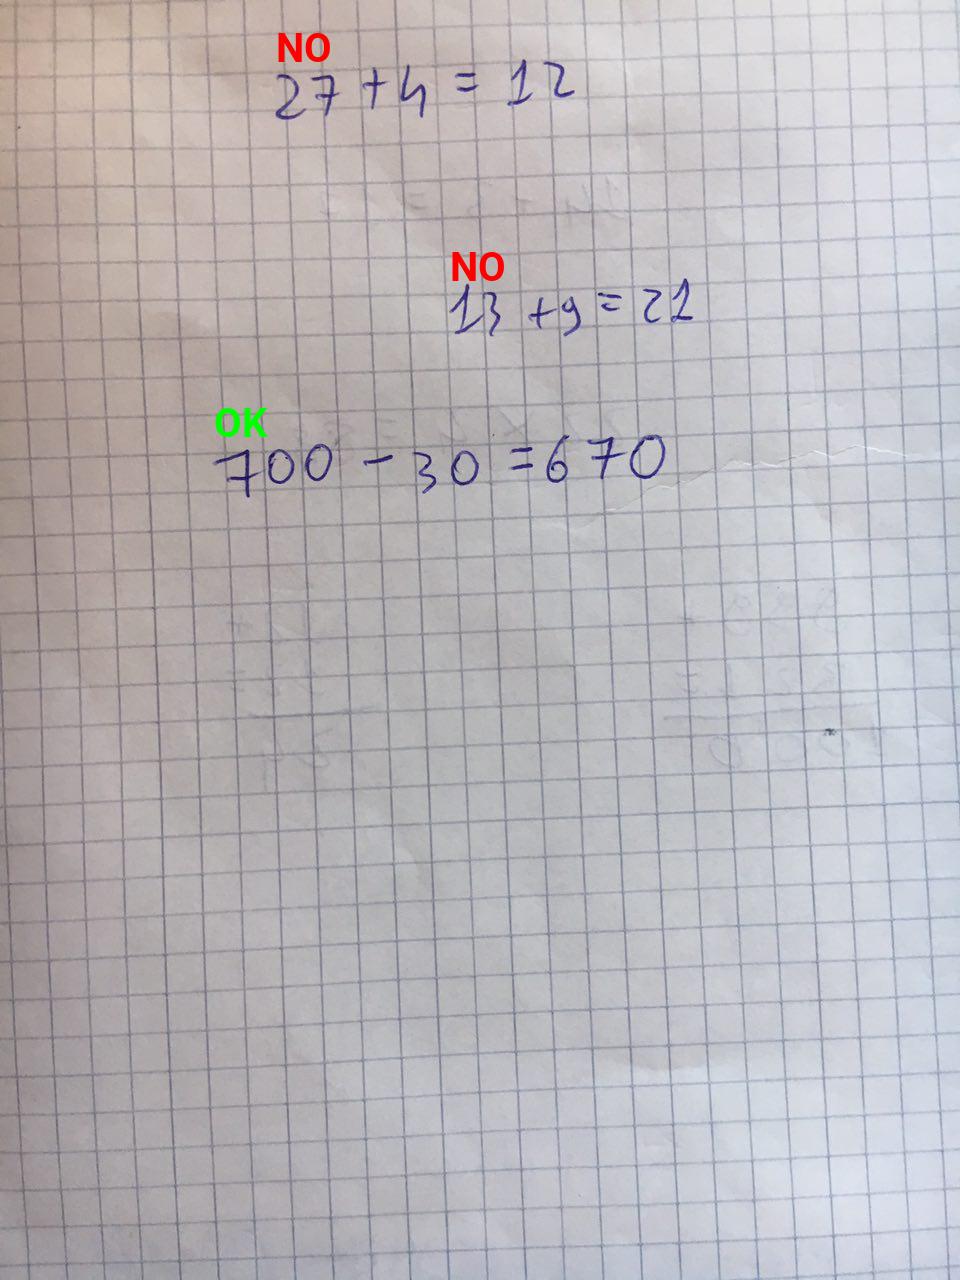 NO
27 + 4 = 12
NO
13 + 9 = 21
OK
700 - 30 = 670